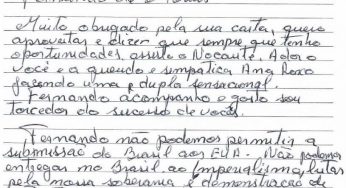 Muito obrigado pela sua carta, quero
aproveitar e dizer que sempre que tenho
oportunidades, assisto o Nocaute. Adoro
você e a querida e simpática Ana Roxo
fazendo uma dupla sensacional.
Fernando acompanho e gosto sou
torcedor do sucesso de vocês.
Fernando não podemos permitir a
submissão do Brasil aos EUA. Não podemos
entregar no Brasil ao Imperialismo, lutar
pela nossa soberania e demonstração de